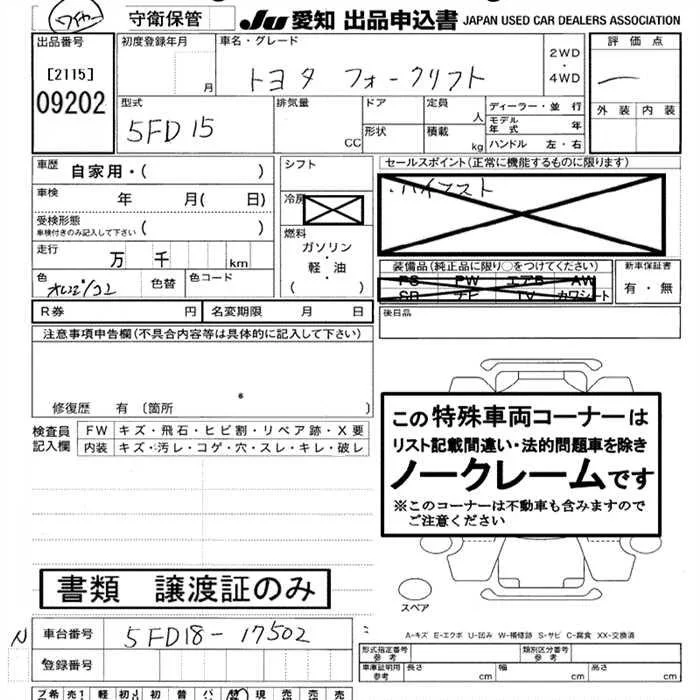 守衛保管 JU 愛知 出品申込書 JAPAN USED CAR DEALERS ASSOCIATION
出品番号 初度登録年月 車名・グレード 2WD ・ 4WD 評価点
[2115] 月 トヨタ フォークリフト
09202
型式 排気量 ドア 定員 人 ディーラー・並行 外装 内装
5FD15 CC 形状 積載 kg モデル年式 年
ハンドル 左・右
車歴 自家用・( ) シフト セールスポイント(正常に機能するものに限ります)
車検 年 月( 日) 冷房 ハイマスト
受検形態 車検付きのみ記入して下さい ( ) 燃料
走行 万 千 km ガソリン ・ 軽油 ( )
装備品(純正品に限り○をつけてください) 新車保証書
PS PW エアB AW 有・無
SR ナビ TV カワシート
色 色替 色コード
R券 円 名変期限 月 日 後日品
注意事項申告欄(不具合内容等は具体的に記入して下さい)
修復歴 有〔箇所 〕
検査員記入欄 FW キズ・飛石・ヒビ割・リペア跡・X要
内装 キズ・汚レ・コゲ・穴・スレ・キレ・破レ
この特殊車両コーナーは
リスト記載間違い・法的問題車を除き
ノークレームです
※このコーナーは不動車も含みますので
ご注意ください
書類 譲渡証のみ
スペア
N 車台番号 5FD18-17502
A-キズ E-エクボ U-凹み W-補修跡 S-サビ C-腐食 XX-交換済
登録番号
形式指定番号 参考 類別区分番号 参考
車庫証明用 参考 長さ cm 幅 cm 高さ cm